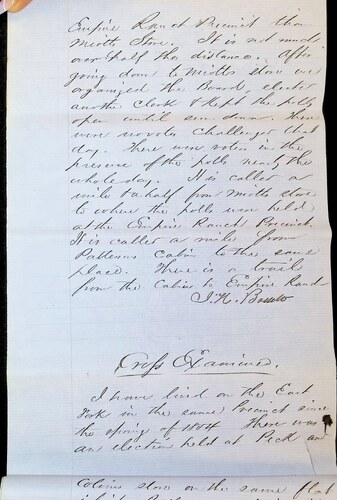 Empire Ranch Precinct than
Miotts Store. It is not much
over half the distance. After
going down to Miotts store we
organized the Board, elected
another Clerk & kept the polls
open until sun down. There
were no votes challenged that
day. There were voters in the
presence of the polls nearly the
whole day. It is called a
mile & a half from Miotts store
to where the polls were held
at the Empire Ranch Precinct.
It is called a mile from
Pattersons Cabin to the same
place. There is a trail
from the Cabin to Empire Ranch
J. H.
Cross Examined.
I have lived on the East
Fork in the same Precinct since
the spring of 1864 There was
an election held at Peck and
Colins store on the same flat